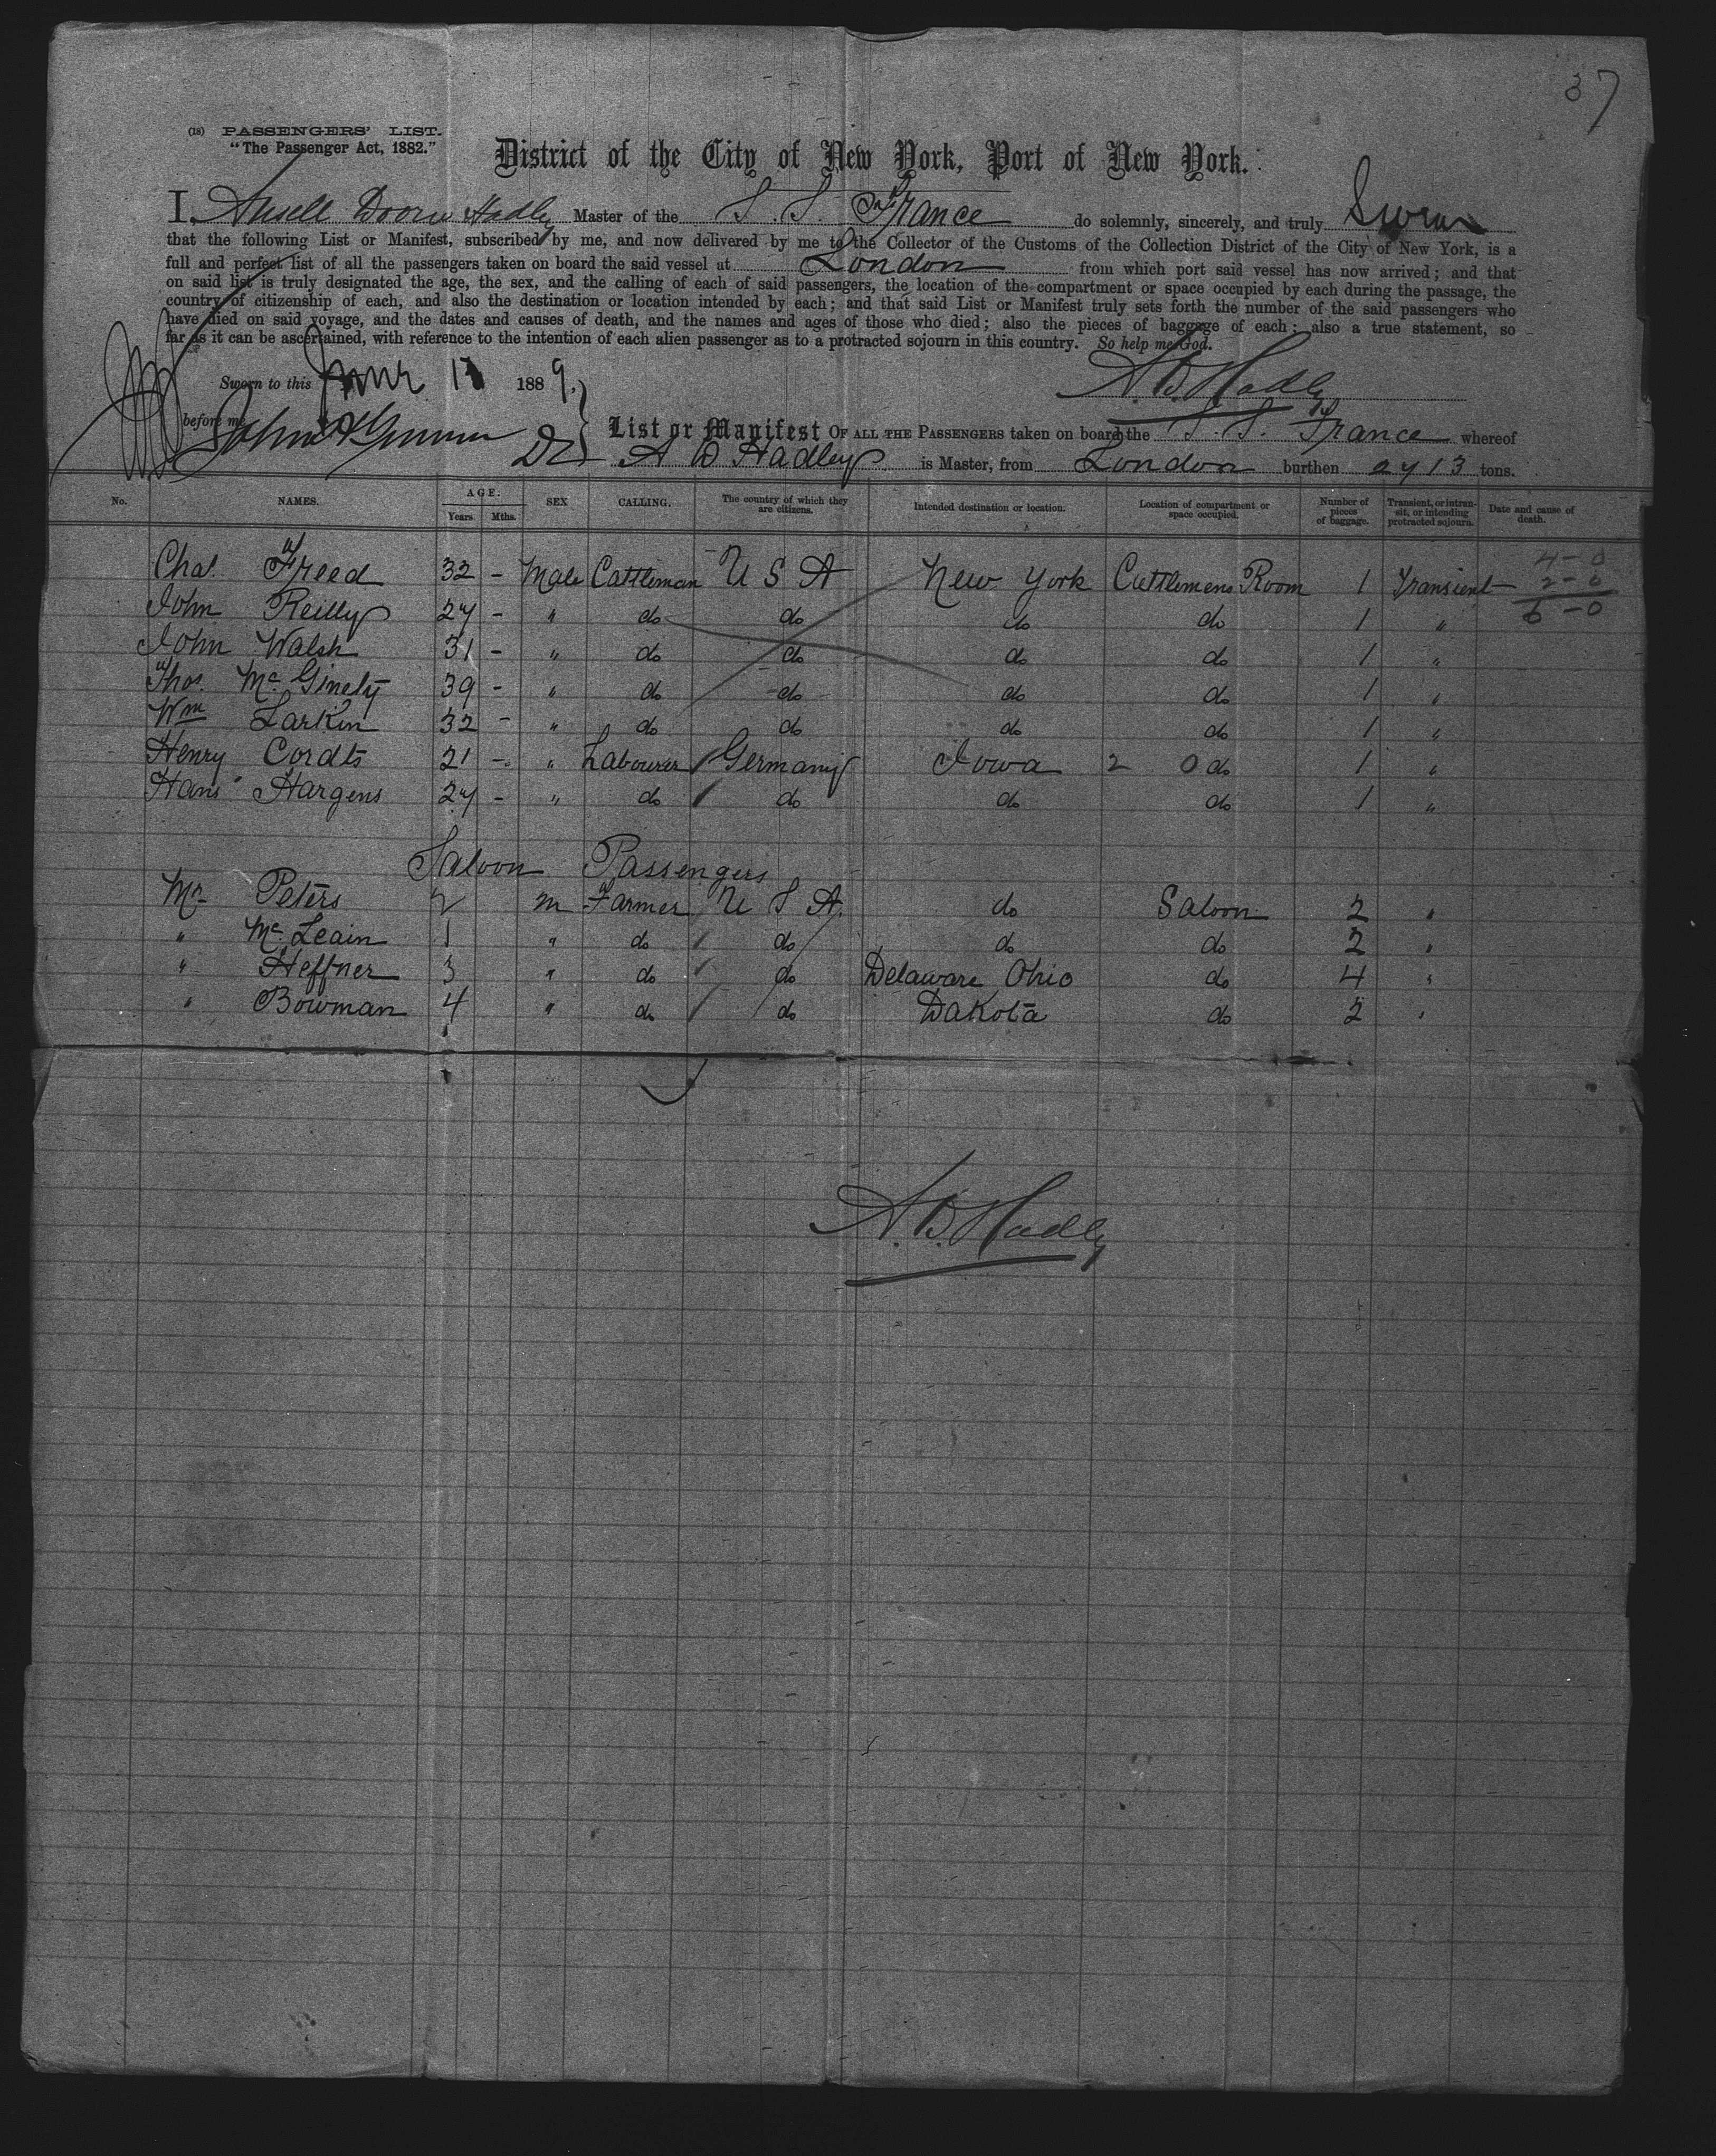 37
(18) PASSENGERS' LIST.
"The Passenger Act, 1882."
District of the City of New York, Port of New York.
I, Ansell Hadley Master of the S. S. France do solemnly, sincerely, and truly Swear
that the following List or Manifest, subscribed by me, and now delivered by me to the Collector of the Customs of the Collection District of the City of New York, is a
full and perfect list of all the passengers taken on board the said vessel at London from which port said vessel has now arrived; and that
on said list is truly designated the age, the sex, and the calling of each of said passengers, the location of the compartment or space occupied by each during the passage, the
country of citizenship of each, and also the destination or location intended by each; and that said List or Manifest truly sets forth the number of the said passengers who
have died on said voyage, and the dates and causes of death, and the names and ages of those who died; also the pieces of baggage of each; also a true statement, so
far as it can be ascertained, with reference to the intention of each alien passenger as to a protracted sojourn in this country. So help me God.
A. D. Hadley
Sworn to this June 1889.
before me John
List or Manifest OF ALL THE PASSENGERS taken on board the S. S. France whereof
A D Hadley is Master, from London burthen 2713 tons.
No. NAMES. AGE. Years. Mths. SEX CALLING. The country of which they are citizens. Intended destination or location. Location of compartment or space occupied. Number of pieces of baggage. Transient, or intransit, or intending protracted sojourn. Date and cause of death.
Chas. Freed 32 - Male Cattleman U S A New York Cattlemens Room 1 Transient 4-0
2-0
John Reilly 27 - " do do do do 1 " 6-0
John Walsh 31 - " do do do do 1 "
Thos. Mc Ginety 39 - " do do do do 1 "
Wm Larkin 32 - " do do do do 1 "
Henry Cordts 21 - " Labourer Germany Iowa 2 0 do 1 "
Hans Hargens 27 - " do do do do 1 "
Saloon Passengers
Mr Peters 2 m Farmer U S A. do Saloon 2 "
" Mc Leain 1 " do do do do 2 "
" Heffner 3 " do do Delaware Ohio do 4 "
" Bowman 4 " do do Dakota do 2 "
A. D. Hadley